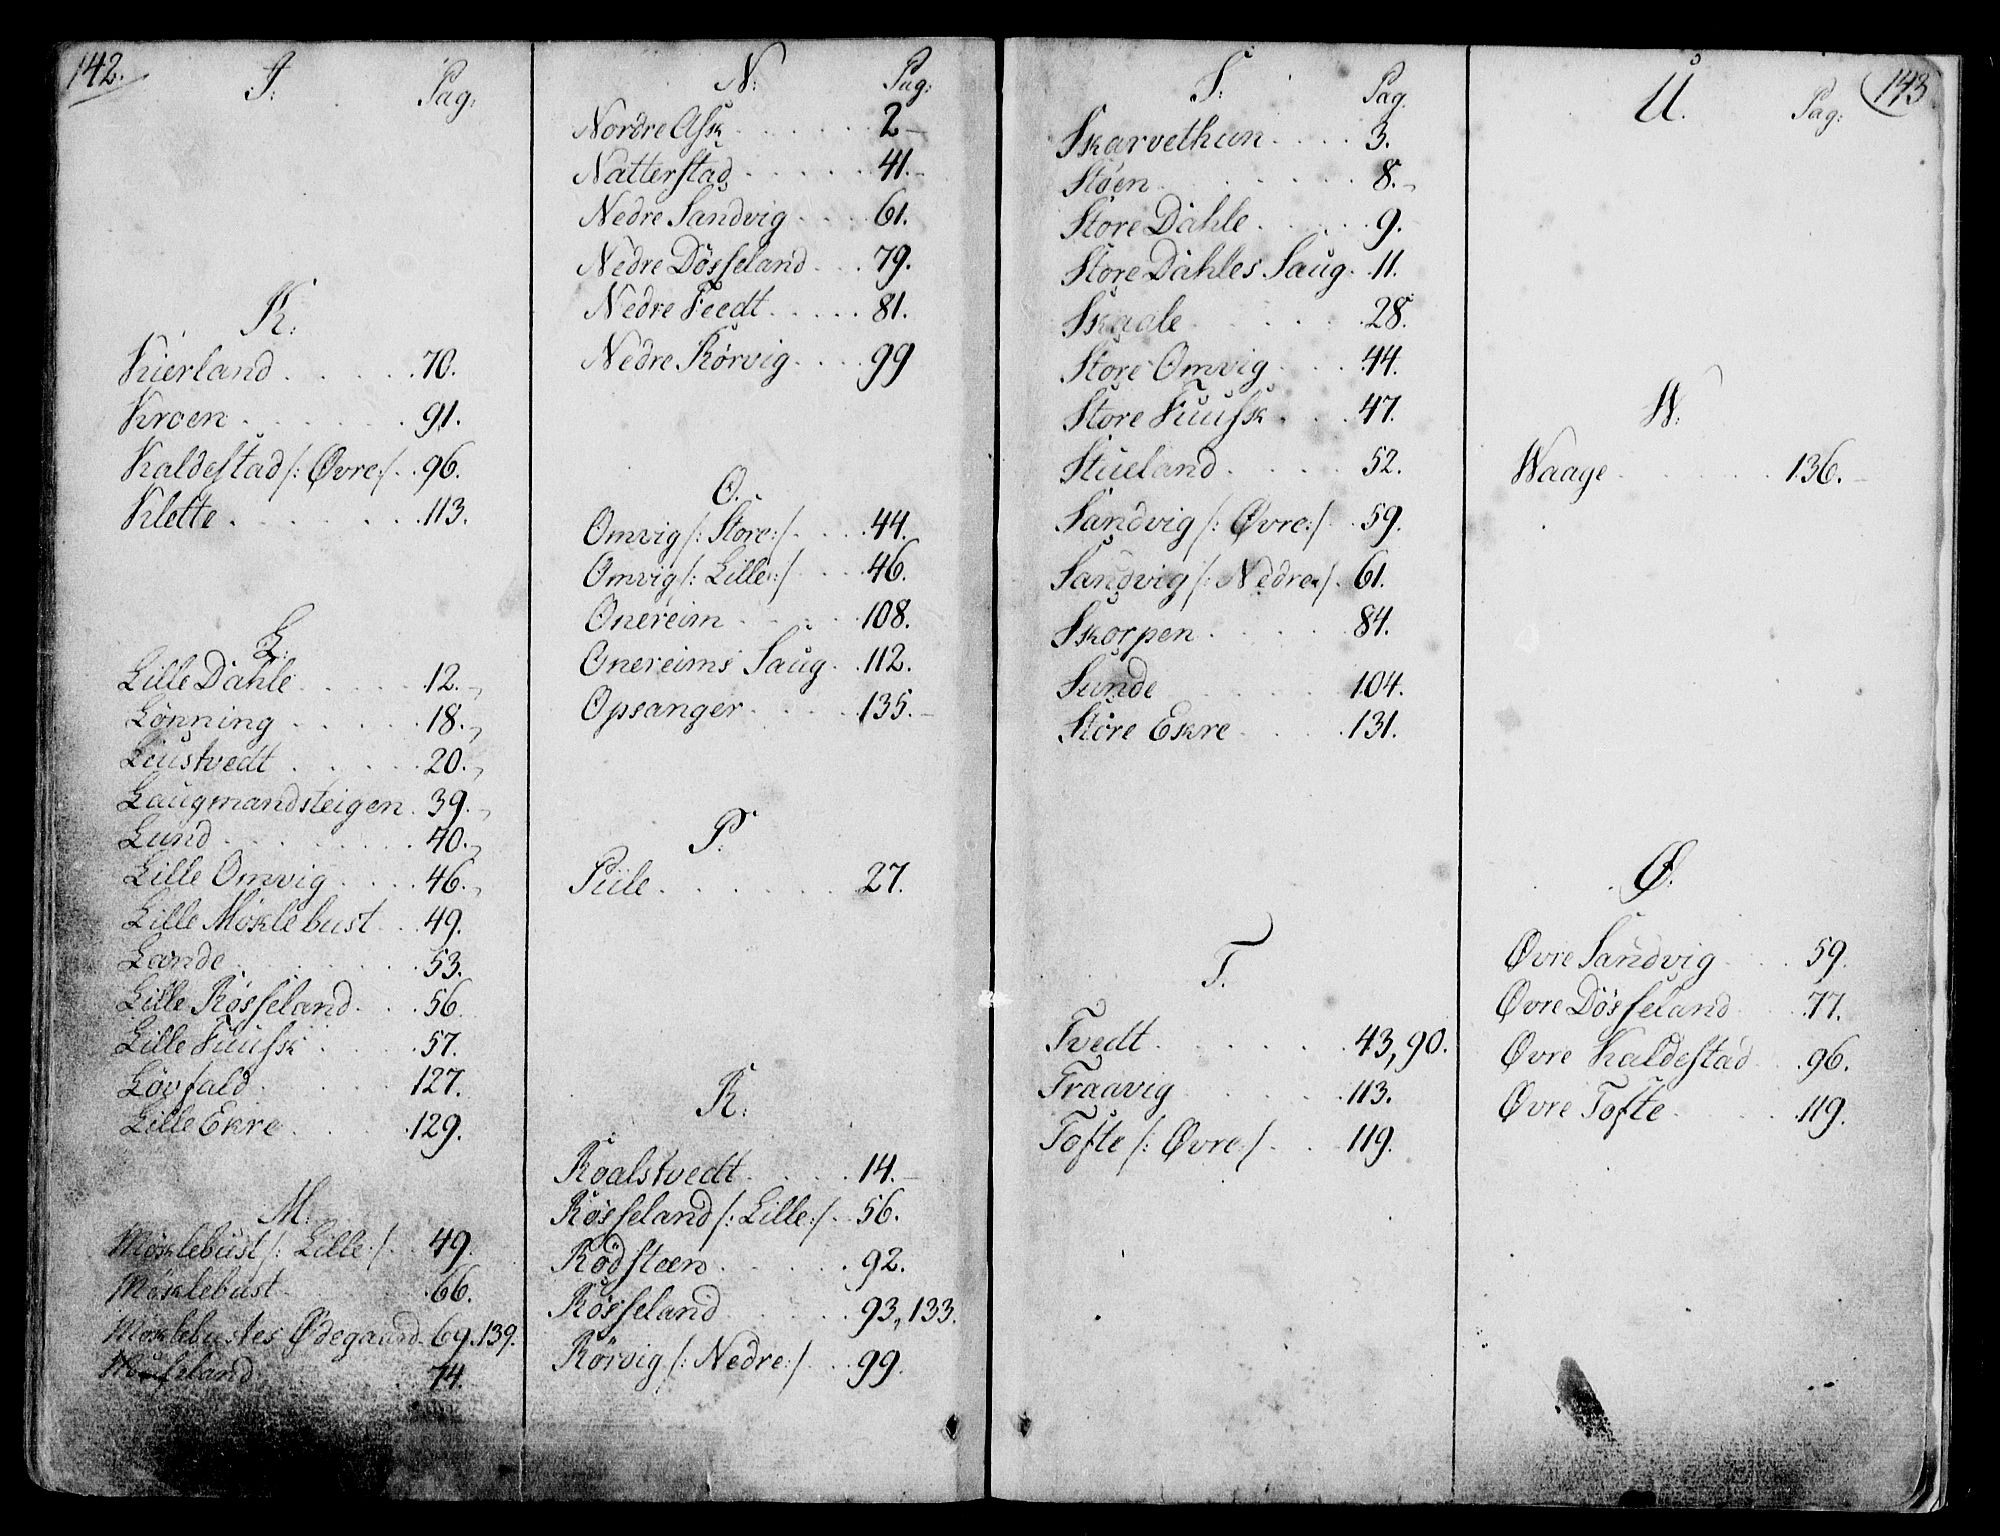 142.
I: Pag:
K:
Kierland . . . . . 70.
Kroen . . . . . . 91.
Kaldestad /: Øvre :/ . . 96.
Klette . . . . . . 113.
L:
Lille Dahle . . . . . 12.
Lønning . . . . . 18.
Liustvedt . . . . . 20.
Laugmandsteigen . 39.
Lund . . . . . . . 40.
Lille Omvig . . . . 46.
Lille Møklebust . . 49.
Lande . . . . . . 53.
Lille Røsseland . . . 56.
Lille Fuusk . . . . 57.
Løvfald . . . . . 127.
Lille Ekre . . . . 129.
M:
Møklebust /: Lille :/ . . 49.
Møklebust . . . . 66.
Møklebustes Ødegaard . 69, 139.
Musland . . . . 74.
N: Pag:
Nordre Ask . . . . . 2
Natterstad . . . . . 41.
Nedre Sandvig . . . . 61.
Nedre Døsseland . . . 79.
Nedre Teedt . . . . . 81.
Nedre Rørvig . . . . 99
O.
Omvig /: Store :/ . . . 44.
Omvig /: Lille :/ . . . 46.
Onereim . . . . . 108.
Onereims Saug . 112.
Opsanger . . . . . 135.
P:
Piile . . . . . . . 27.
R:
Roalstvedt . . . . . 14.
Røsseland /: Lille :/ . . 56.
Rødstøen . . . . . . 92.
Røsseland . . . . . 93, 133.
Rørvig /: Nedre :/ . . 99.
143
S: Pag.
Skarvethun . . . . 3.
Støen . . . . . . . 8.
Store Dahle . . . . . 9.
Store Dahles Saug . . 11.
Skaale . . . . . . 28.
Store Omvig . . . . 44.
Store Fuusk . . . . 47.
Stueland . . . . . 52.
Sandvig /: Øvre :/ . . 59.
Sandvig /: Nedre :/ . 61.
Skorpen . . . . . 84.
Sunde . . . . . . 104.
Store Ekre . . . . . 131.
T.
Tvedt . . . . . . . 43, 90.
Traavig . . . . . . 113.
Tofte /: Øvre :/ . . . 119.
U. Pag:
W:
Waage . . . . . . 136.
Ø.
Øvre Sandvig . . . 59.
Øvre Døsseland . . . 77.
Øvre Kaldestad . . 96.
Øvre Tofte . . . . . 119.